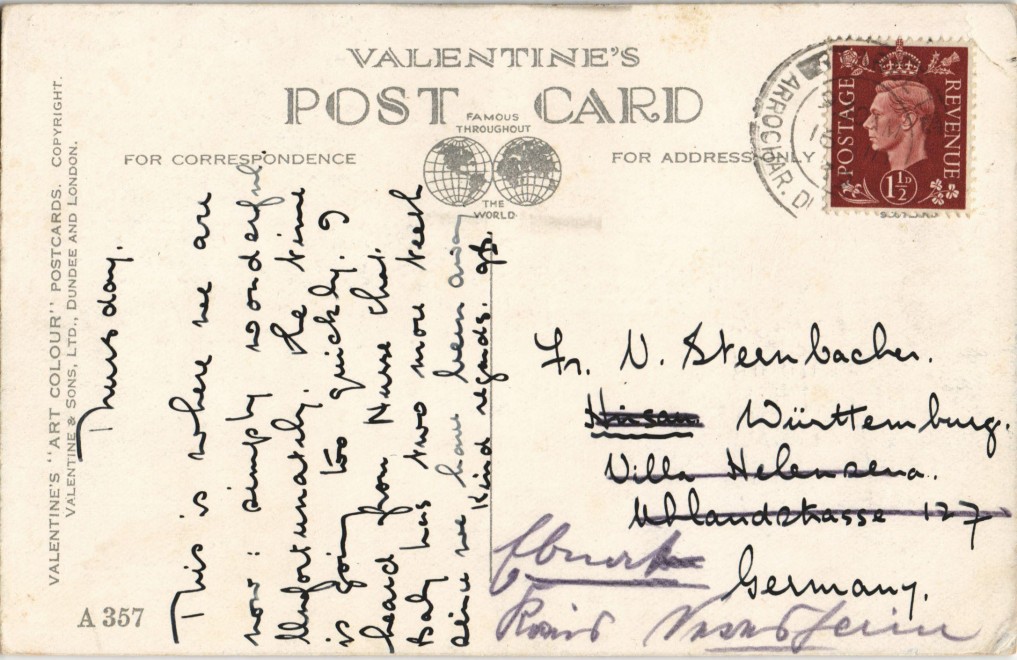 VALENTINE'S
POST CARD
FAMOUS
THROUGHOUT
THE
WORLD
FOR CORRESPONDENCE
FOR ADDRESS ONLY
VALENTINE'S "ART COLOUR" POSTCARDS. COPYRIGHT.
VALENTINE & SONS, LTD., DUNDEE AND LONDON.
A 357
Thursday.
This is where we are
now: simply wonderful
Unfortunately, the time
is going too quickly. I
heard from Nurse that
Baby has two more teeth
since we have been away
Kind regards.
ARROCHAR. D
POSTAGE
REVENUE
1½D
Fr. V. Steenbacher.
Württemburg.
Villa Helensena.
Uhlandstrasse 127
Germany.